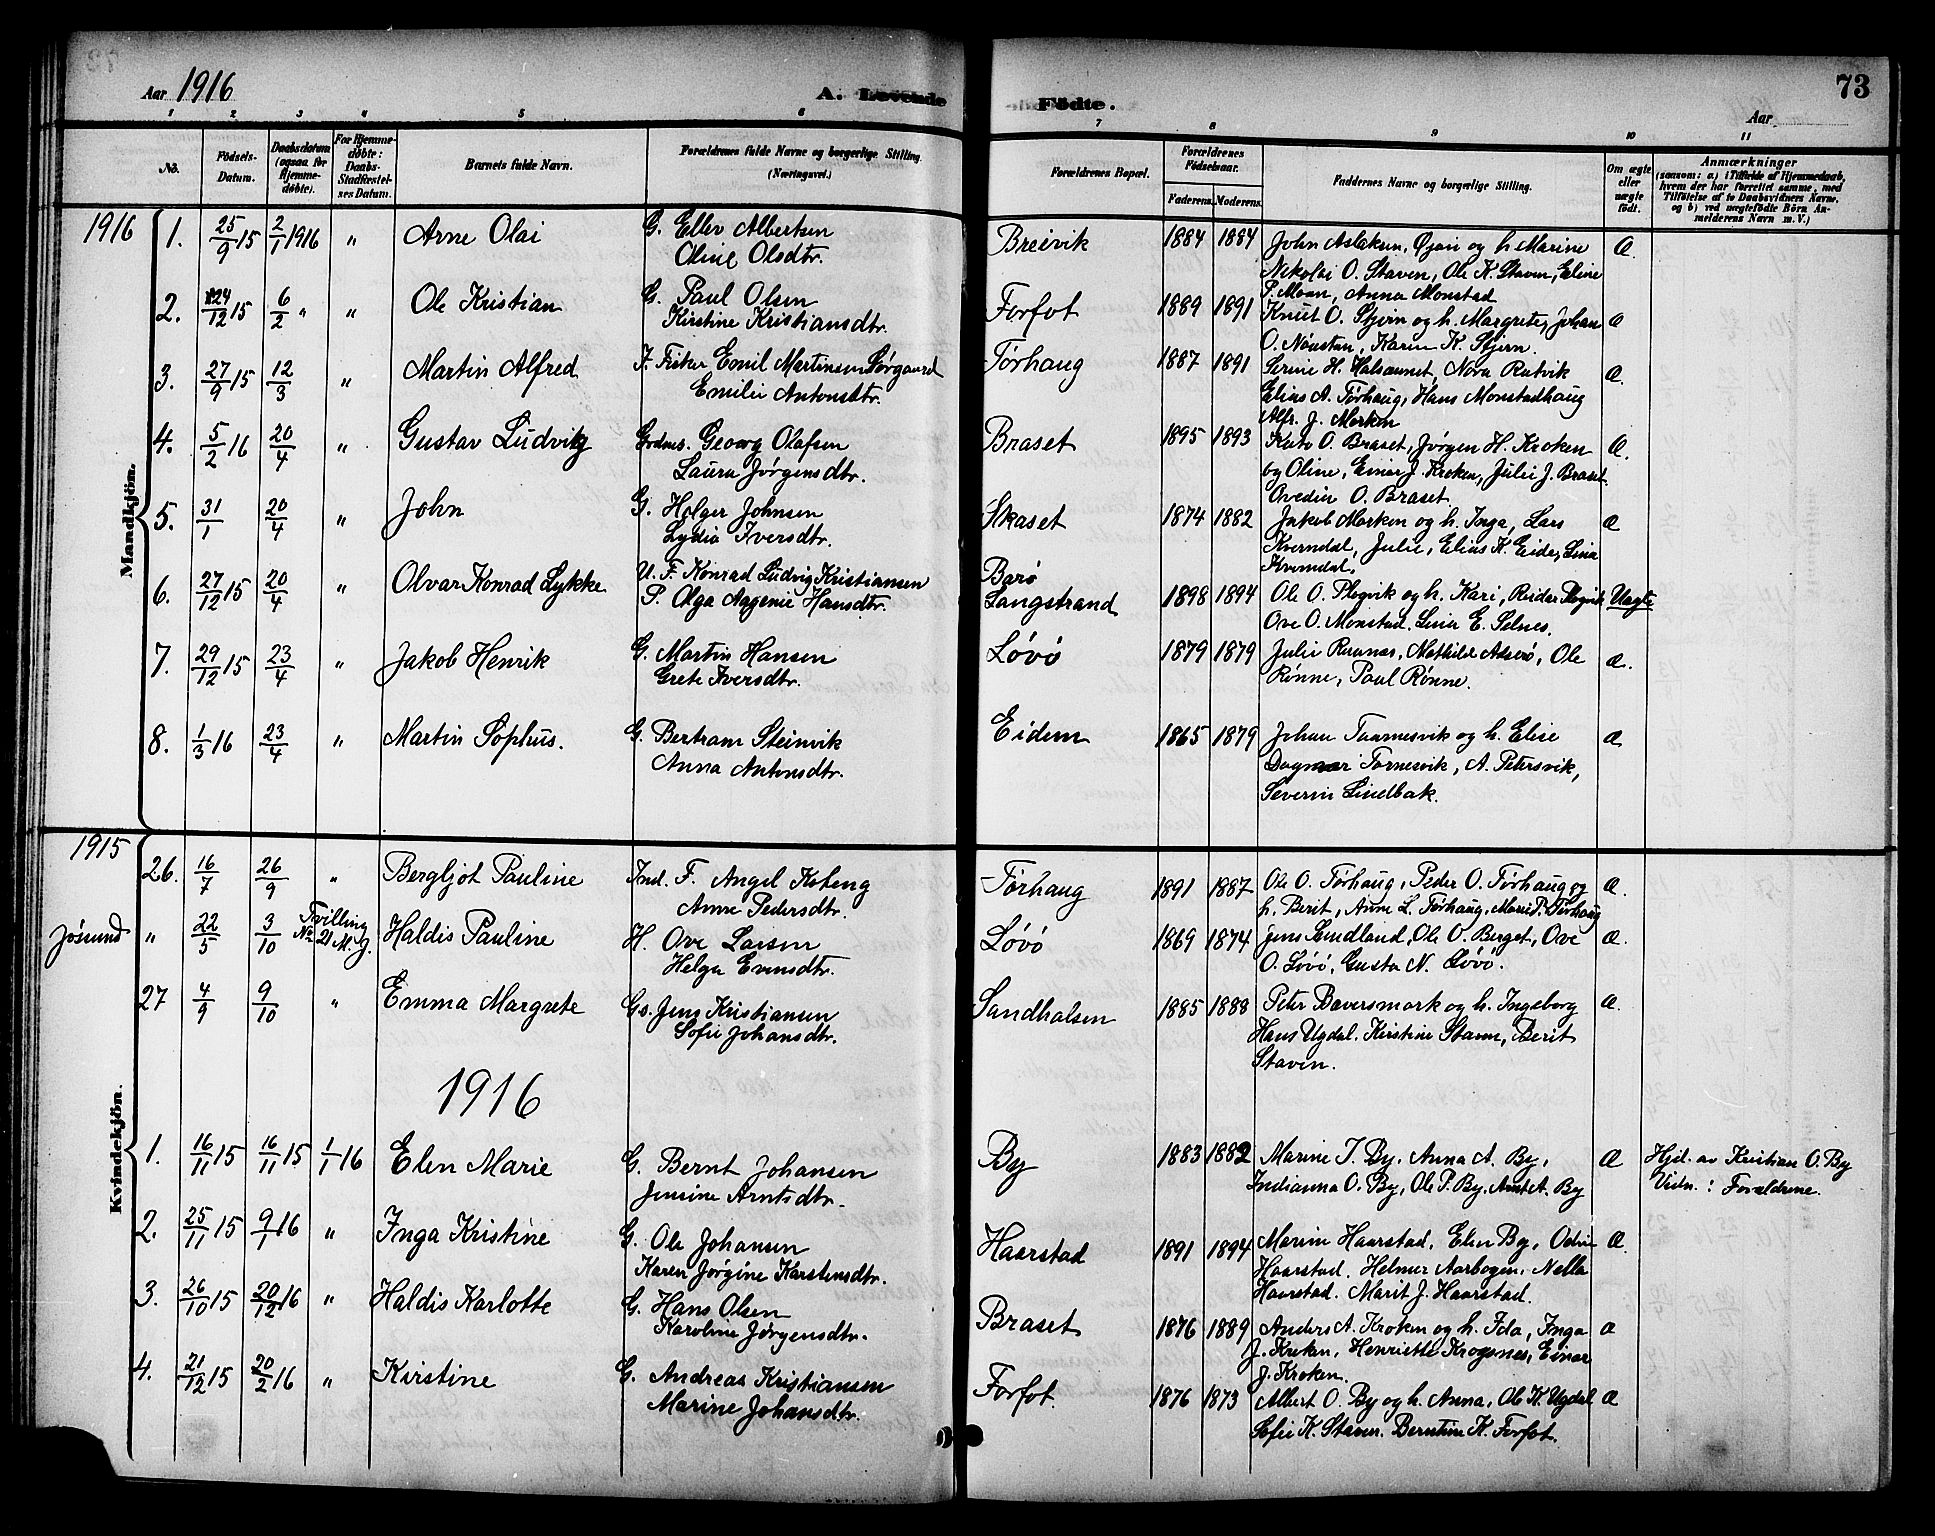 Aar 1916
A. Levende
1 2 3 4 5 6
No.
Fødsels-Datum.
Daabsdatum (ogsaa for Hjemme-døbte).
For Hjemme-døbte: Daabs-Stadfæstel-ses Datum.
Barnets fulde Navn.
Forældrenes fulde Navne og borgerlige Stilling. (Næringsvei.)
Mandkjön.
1916 1. 25/9 15 2/1 1916 " Arne Olai G. Ellev Albertsen
Oline Olsdtr.
2. 24/12 15 6/2 " " Ole Kristian G. Paul Olsen
Kirstine Kristiansdtr.
3. 27/9 15 12/3 " Martin Alfred F. Fisker Emil Martinsen Sørgaard
Emilie Antonsdtr.
4. 5/2 16 20/4 " Gustav Ludvig Grdms. Georg Olafsen
Laura Jørgensdtr.
5. 31/1 20/4 " John G. Holger Johnsen
Lydia Iversdtr.
6. 27/12 15 20/4 " Olvar Konrad Lykke U. F. Konrad Ludvig Kristiansen
P. Olga Aagenie Hansdtr.
7. 29/12 15 23/4 " Jakob Henrik G. Martin Hansen
Grete Iversdtr.
8. 1/3 16 23/4 " Martin Sophus. G. Bertram Steinvik
Anna Antonsdtr.
Kvindekjön.
1915
26. 16/7 26/9 " Bergljot Pauline Ind. F. Angel Koteng
Anne Pedersdtr.
Jøssund " 22/5 3/10 Tvilling No 21 M. J. Haldis Pauline H. Ove Larsen
Helga Evensdtr.
27 4/9 9/10 " Emma Margrete Gs. Jens Kristiansen
Sofie Johansdtr.
1916
1. 16/11 15 16/11 15 1/1 16 Elen Marie G. Bernt Johansen
Jensine Arntsdtr.
2. 25/11 15 9/1 16 " Inga Kristine G. Ole Johansen
Karen Jørgine Karstensdtr.
3. 26/10 15 20/12 16 " Haldis Karlotte G. Hans Olsen
Karoline Jørgensdtr.
4. 21/12 15 20/2 16 " Kirstine G. Andreas Kristiansen
Marine Johansdtr.
73
Fødte.
Aar
7 8 9 10 11
Forældrenes Bopæl.
Forældrenes Fødselsaar.
Faderens. Moderens.
Faddernes Navne og borgerlige Stilling.
Om ægte eller uægte født.
Anmærkninger
(saasom: a.) i Tilfælde af Hjemmedaab,
hvem der har forrettet samme, med
Tilføielse af to Daabsvidners Navne.
og b) ved uægtefødte Börn An-
melderens Navn m. V.)
Breivik 1884 1884 John Aslaksen, Øjan og h. Marine Æ.
Nikolai O. Staven, Ole K. Staven, Eline
P. Moan, Anna Monstad
Forfot 1889 1891 Knut O. Stjern og h. Margrete, Johan Æ
O. Nønstan, Karin K. Stjern.
Tørhaug 1887 1891 Serine H. Halsaunet, Nora Ratvik Æ.
Elias A. Tørhaug, Hans Monstadhaug
Alfr. J. Morken
Braset 1895 1893 Kato O. Braset, Jørgen H. Kroken Æ.
og Oline, Einar J. Kroken, Julie J. Braset.
Ovedie O. Braset.
Skaset 1874 1882 Jakob Morken og h. Inga, Lars Æ
Kverndal, Julie, Elias K. Eide, Lina
Kverndal.
Barø
Langstrand 1898 1894 Ole O. Plegvik og h. Kari, Reidar Plegvik Uægte
Ove O. Monstad. Lina E. Selnes.
Løvø 1879 1879 Julie Ramnæs, Mathilde Alsevø, Ole Æ.
Rønne, Paul Rønne.
Eidem 1865 1879 Johan Taarnesvik og h. Elise Æ
Dagmar Tornesvik, A. Petersvik,
Severin Lindbak.
Tørhaug 1891 1887 Ole O. Tørhaug, Peder O. Tørhaug og Æ.
h. Berit, Anne L. Tørhaug, Marie P. Tørhaug
Løvø 1869 1874 Jens Sundland, Ole O. Berget, Ove Æ.
O. Løvø, Gusta N. Løvø.
Sandhalsen 1885 1888 Peter Baversmark og h. Ingeborg Æ.
Hans Ugdal. Kirstine Staven, Berit
Staven.
By 1883 1882 Marine J. By. Anna A. By, Æ Hjd. av Kristian O. By
Indianna O. By, Ole P. By. Arnt A. By Vidn.: Forældrene.
Haarstad 1891 1894 Marine Haarstad. Elen By, Odin Æ.
Haarstad. Helmer Aarbogen. Nella
Haarstad. Marit J. Haarstad.
Braset 1876 1889 Anders A. Kroken og h. Ida, Inga Æ
J. Kroken, Henriette Krogsnes, Einar
J. Kroken.
Forfot. 1876 1873 Albert O. By og h. Anna, Ole K. Ugdal Æ
Sofie K. Staven. Berntine K. Forfot.